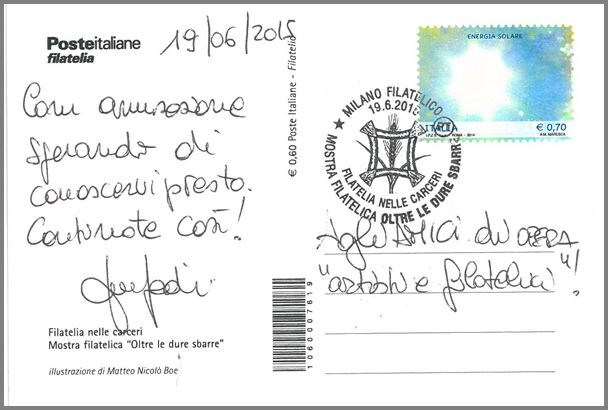 Posteitaliane
filatelia
19/06/2015
Com ammirazione
sperando di
conoscervi presto.
Continuate così!
Filatelia nelle carceri
Mostra filatelica "Oltre le dure sbarre"
illustrazione di Matteo Nicolò Boe
€ 0,60 Poste Italiane - Filatelia
1060007619
MILANO FILATELICO
19.6.2015
FILATELIA NELLE CARCERI
MOSTRA FILATELICA OLTRE LE DURE SBARRE
ENERGIA SOLARE
ITALIA
€ 0,70
Agli AMICI di OPERA
"artisti e filatelici"!